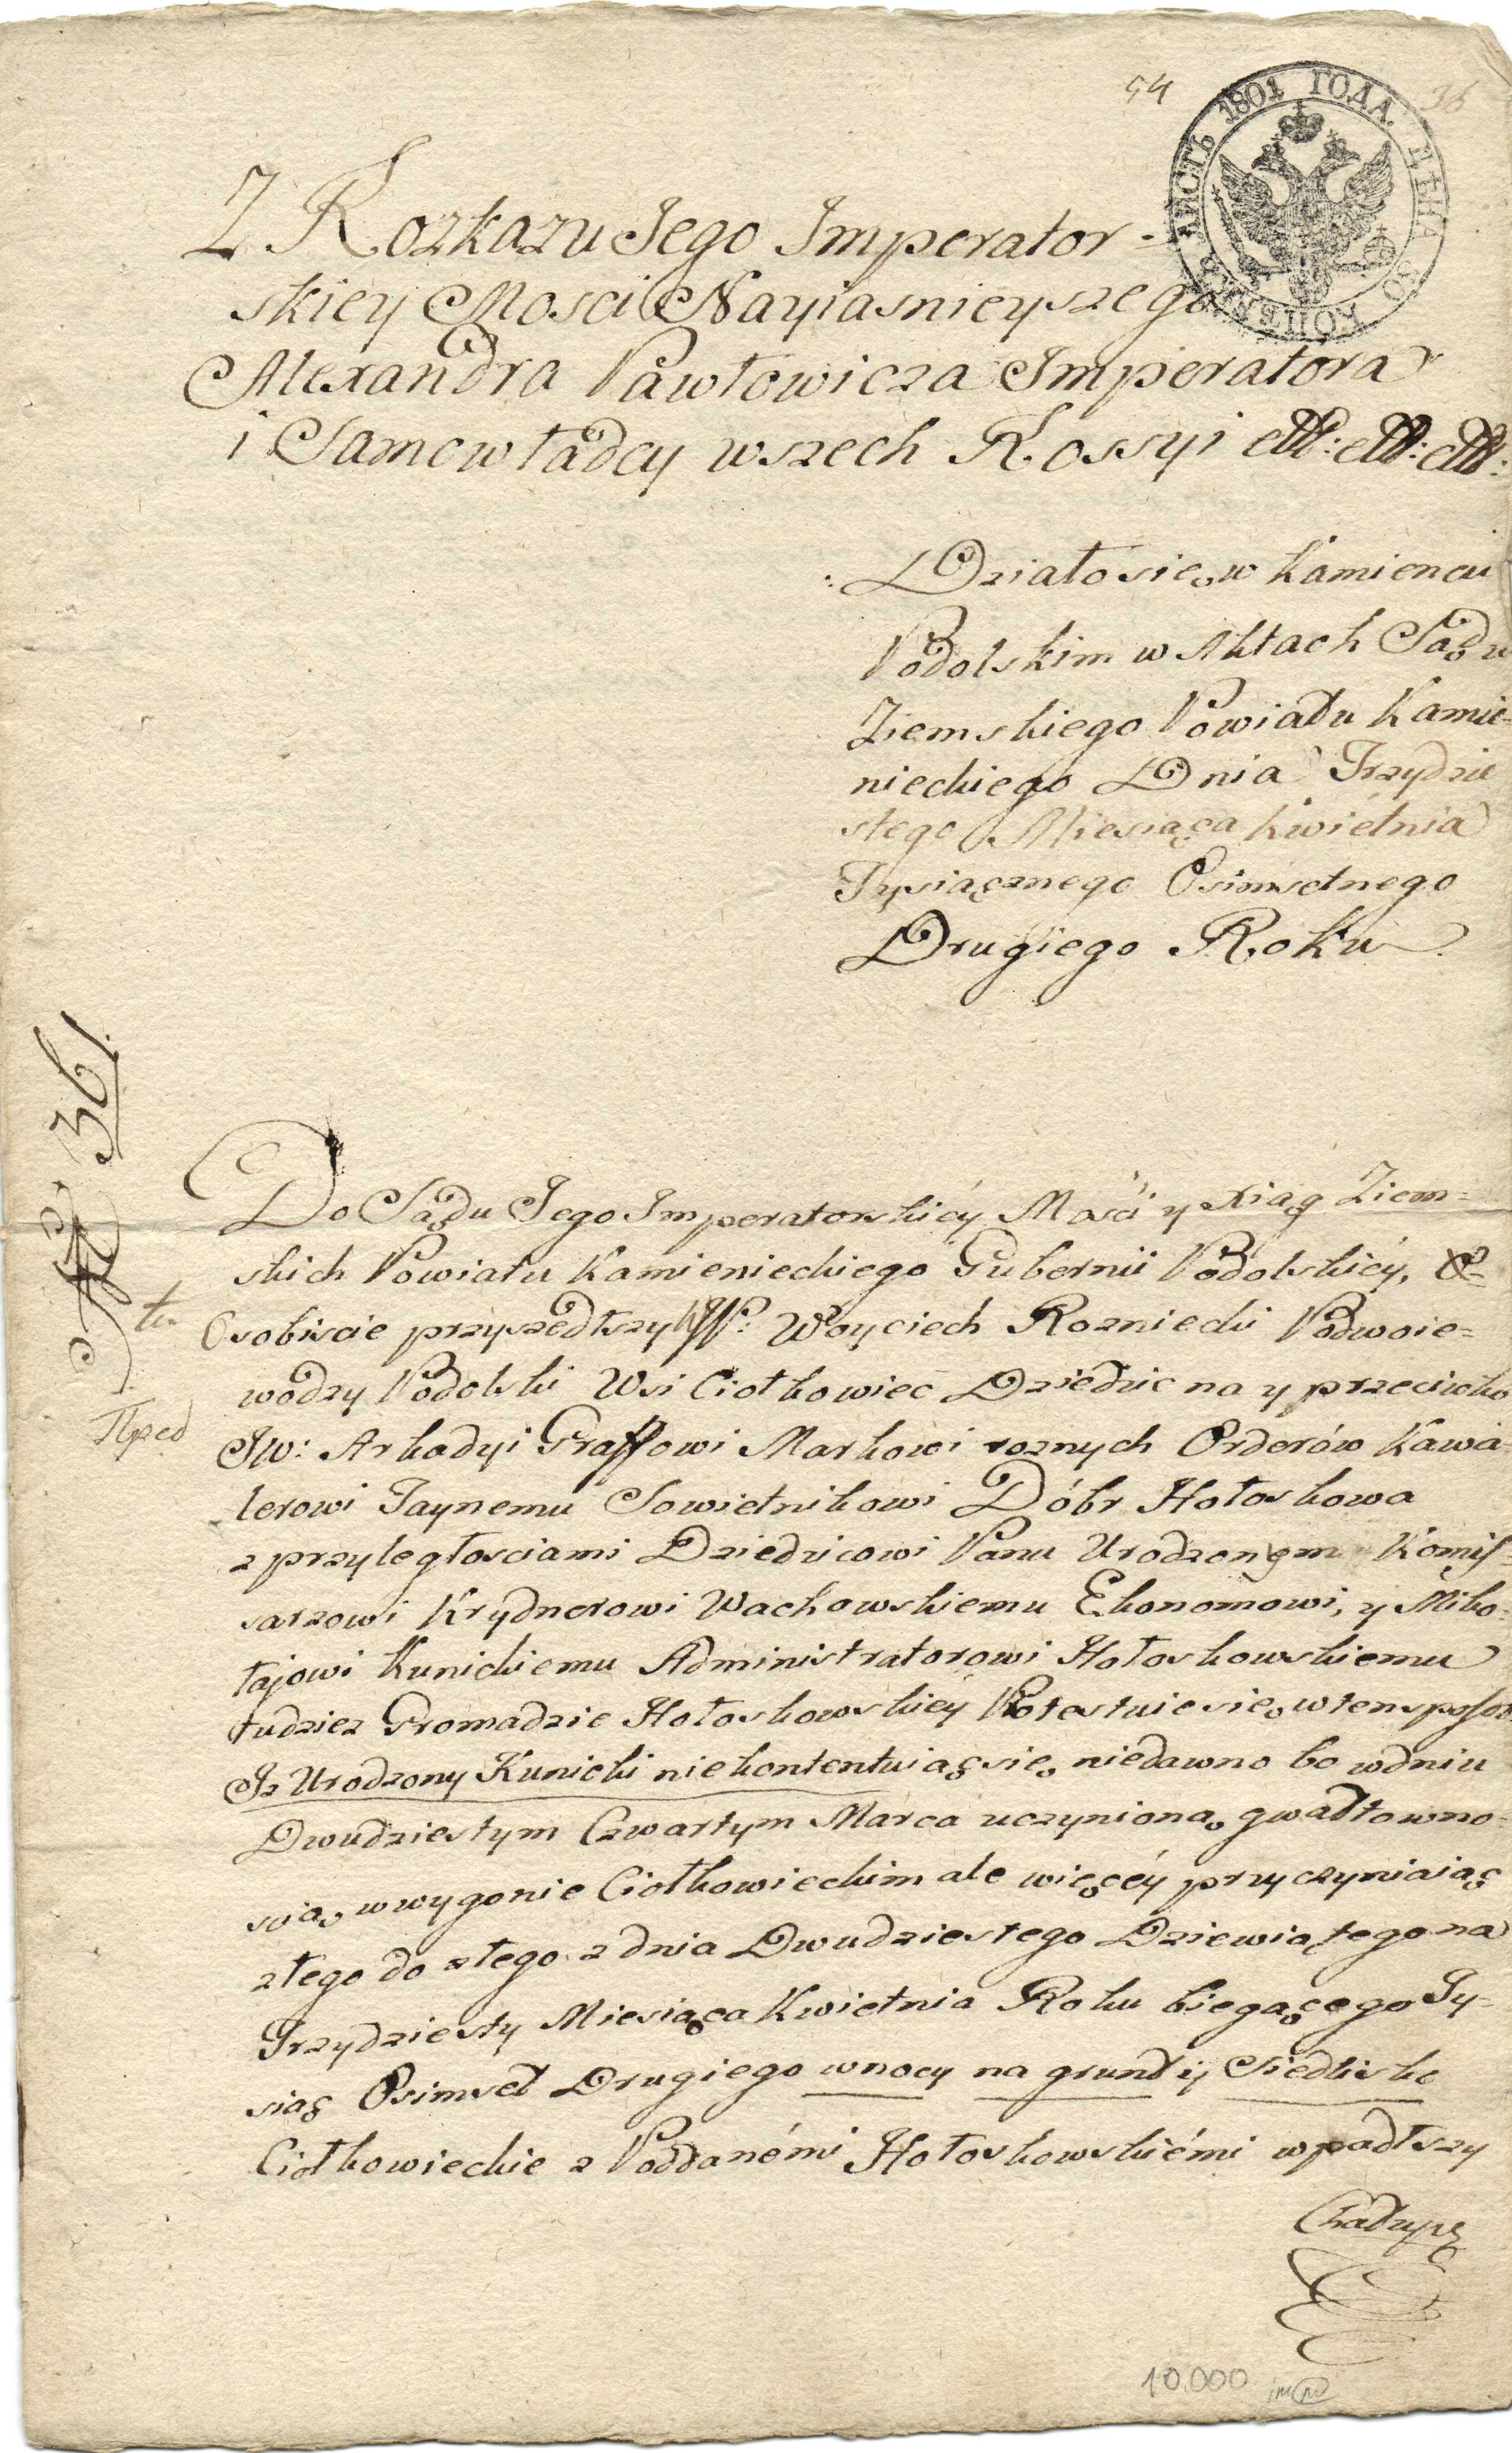 54
36
ЛИСТЬ 1801 ГОДА. ЦѢНА 30 КОПѢЕКЪ
Z Rozkazu Jego Imperator-
skiey Mosci Nayiasnieyszego
Alexandra Pawłowicza Imperatora
i Samowładcy wszech Rossyi ett: ett: ett:
Działo się w Kamiencu
Podolskim w Aktach Sądu
Ziemskiego Powiatu Kamie-
nieckiego Dnia Trzydzie
stego Miesiąca Kwietnia
Tysiącznego Osimsetnego
Drugiego Roku
361.
Do Sądu Jego Imperatorskiéy Mosci y Xiąg Ziem=
skich Powiatu Kamienieckiego Gubernii Podolskiéy,
tu
Osobiscie przyszedłszy W: Woyciech Rozniecki Podwoie=
wodzy Podolski Wsi Ciotkowiec Dziedzic na y przeciwko
Пред
JW: Arkadyi Graffowi Markowi roznych Orderów Kawa
lerowi Taynemu Sowietnikowi Dóbr Hołoskowa
z przyległosciami Dziedzicowi Panu Urodzonym Komis=
sarzowi Krydnerowi Wachowskiemu Ekonomowi, y Miko=
łajowi Kunickiemu Administratorowi Hołoskowskiemu
tudziez Gromadzie Hołoskowskiéy Protestuie się w ten sposob
Iz Urodzony Kunicki niekontentuiąc się niedawno bo w dniu
Dwudziestym Czwartym Marca uczynioną gwałtowno=
scią w wygonie Ciotkowieckim ale więcéy przyczyniaiąc
złego do złego z dnia Dwudziestego Dziewiątego na
Trzydziesty Miesiąca Kwietnia Roku biegącego Ty=
siąc Osimset Drugiego w nocy na grunt y Siedlisko
Ciotkowieckie z Poddanémi Hołoskowskiémi wpadłszy
Chałupę
10.000